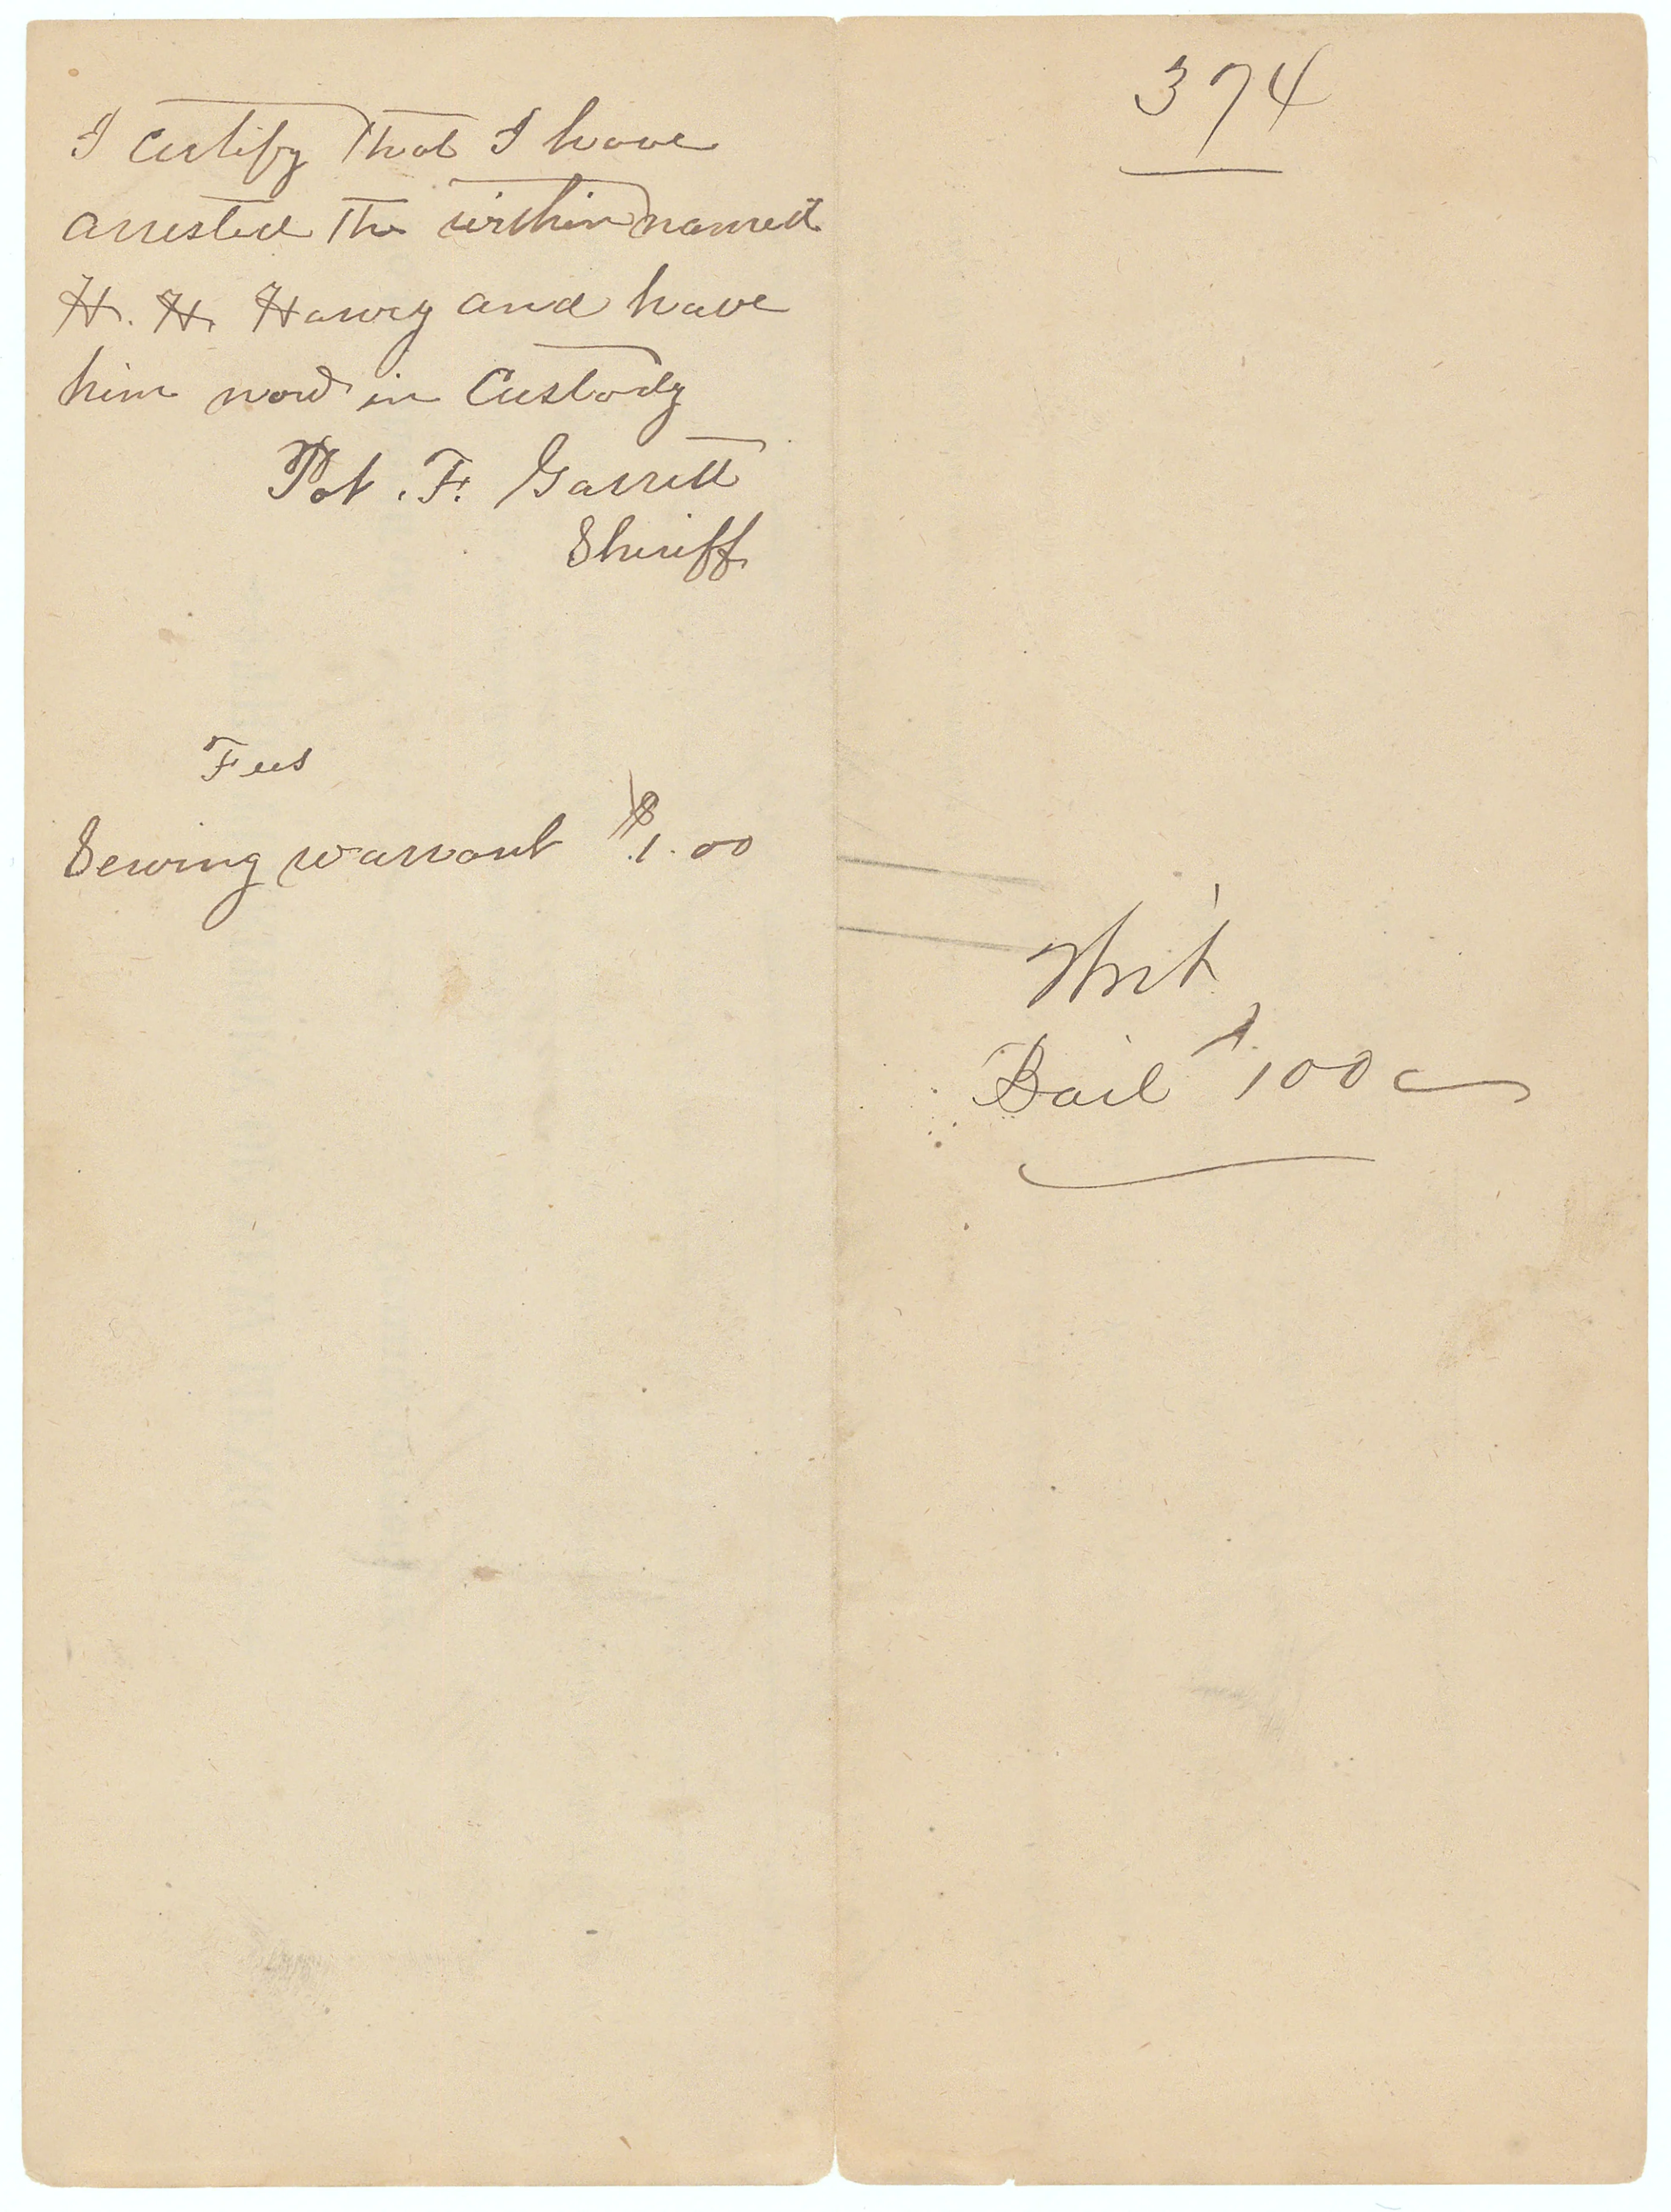 I certify that I have
arrested the within named
H. H. Harvey and have
him now in Custody
Pat. F. Garrett
Sheriff
Fees
Serving warrant $1.00
374
Writ
Bail $100